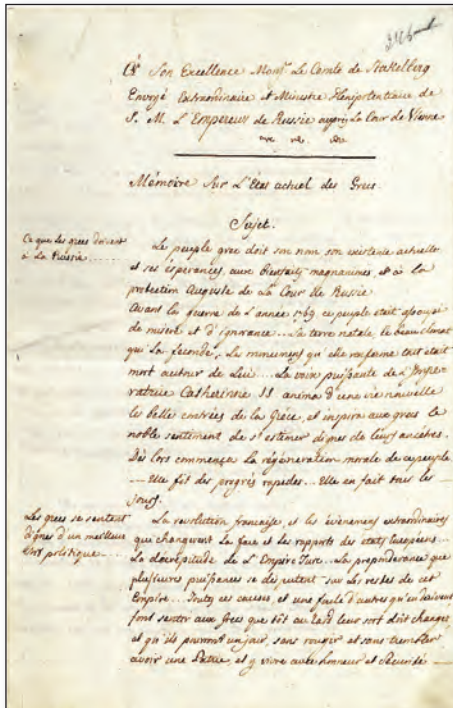 À Son Excellence Monsr. Le Comte de Stakelberg
Envoyé Extraordinaire et Ministre Plenipotentiaire de
S. M. L'Empereur de Russie auprès La Cour de Vienne
Mémoire Sur L'Etat actuel des Grecs.
Sujet.
Ce que les grecs doivent
à La Russie......
Le peuple grec doit son nom son existence actuelle
et ses éspérances, aux bienfaits magnanimes, et à la
protection Auguste de La Cour de Russie
Avant la guerre de l'année 1769 ce peuple était assoupi
de misère et d'ignorance... La terre natale, le beau climat
qui La feconde, Les monumens qu'elle renferme tout était
mort autour de Lui.... La voix puissante de L'Impe-
ratrice Catherinne II anima d'une vie nouvelle
les belles contrées de la Grèce, et inspira aux grecs le
noble sentiment de s'estimer dignes de leurs ancêtres.
Dès lors commença La régéneration morale de ce peuple
— Elle fit des progrès rapides... Elle en fait tous les —
jours.
Les grecs se sentent
dignes d'un meilleur
sort politique....
La revolution française, et les évènemens extraordinaires
qui changerent La face et les rapports des etats Européens...
La décrépitude de L'Empire Turc... La preponderance que
plusieurs puissances se disputent sur Les restes de cet
Empire... Toutes ces causes, et une foule d'autres qui en dérivent
font sentir aux grecs que tôt ou tard leur sort doit changer
et qu'ils pourront un jour, sans rougir et sans trembler
avoir une Patrie, et y vivre avec honneur et Sécurité —